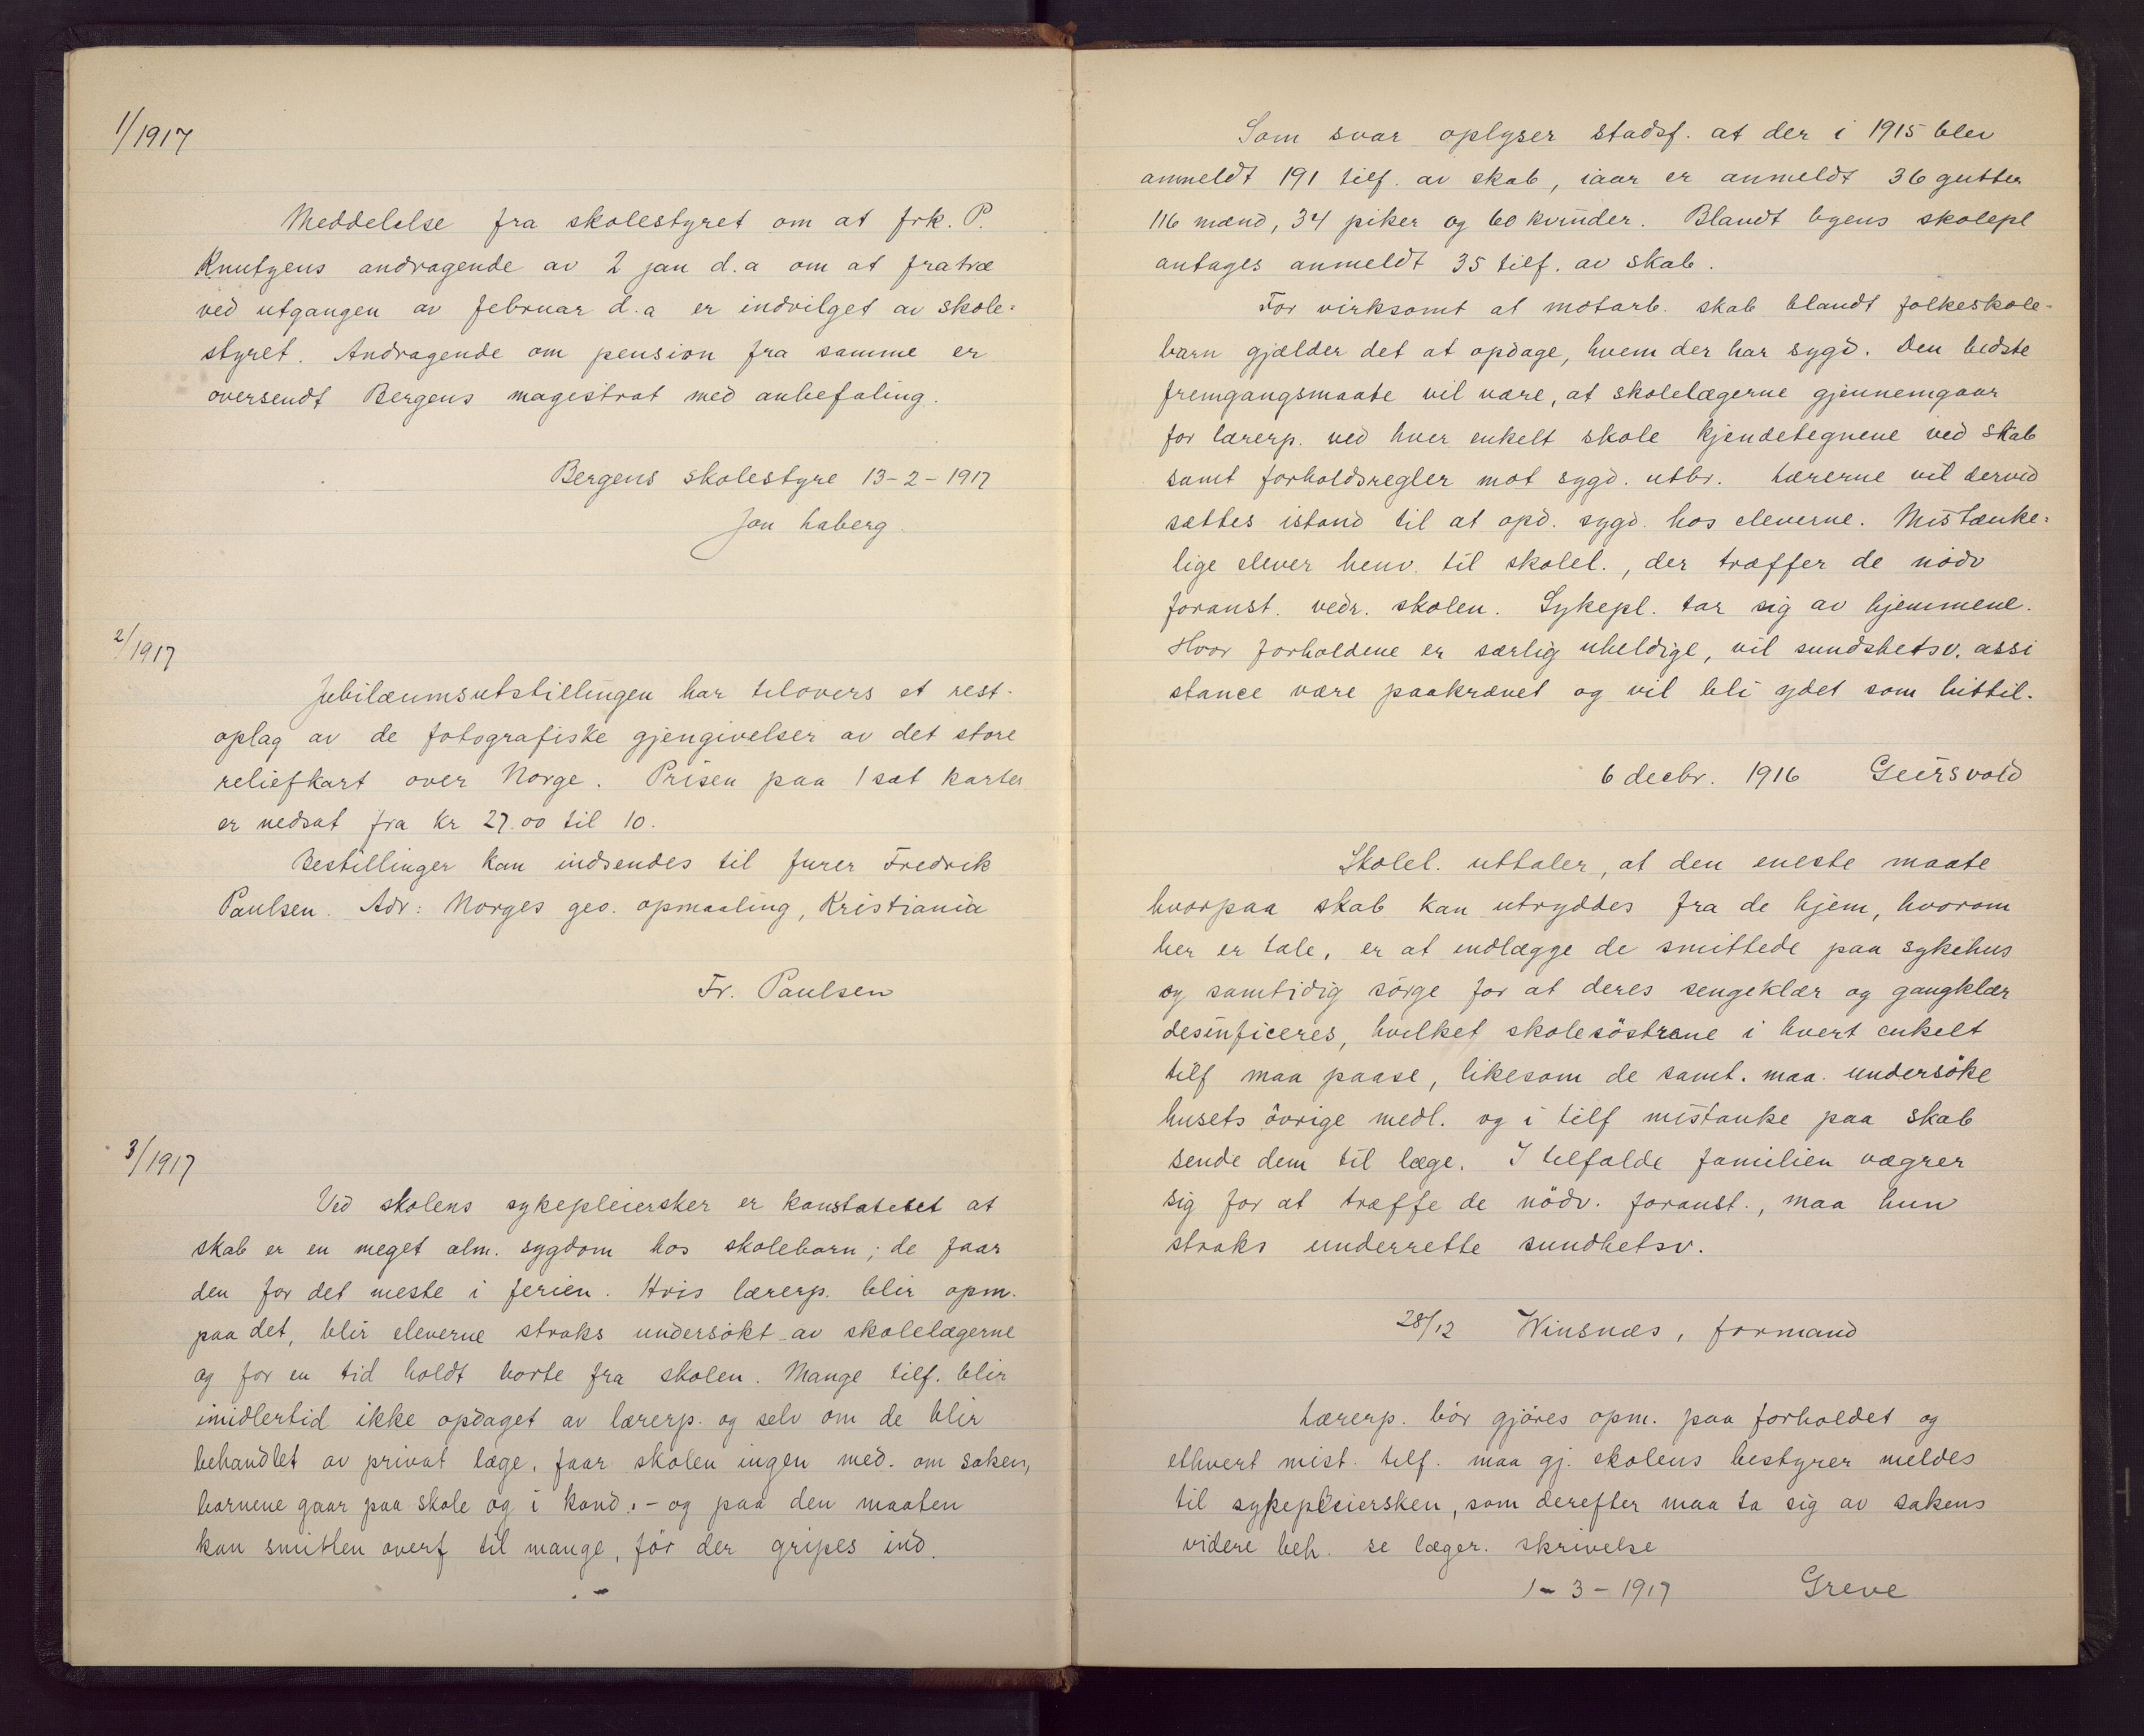 1/1917
Meddelelse fra skolestyret om at frk. P.
Knutzens andragende av 2 jan d.a om at fratræ
ved utgangen av februar d.a er indvilget av skole=
styret. Andragende om pension fra samme er
oversendt Bergens magistrat med anbefaling.
Bergens skolestyre 13-2-1917
Jon Laberg.
2/1917
Jubilæumsutstillingen har tilovers et rest-
oplag av de fotografiske gjengivelser av det store
reliefkart over Norge. Prisen paa 1 sæt karter
er nedsat fra kr 27.00 til 10.
Bestillinger kan indsendes til furer Fredrik
Paulsen. Adr: Norges geo. opmaaling, Kristiania
Fr. Paulsen
3/1917
Ved skolens sykepleiersker er konstateret at
skab er en meget alm. sygdom hos skolebarn; de faar
den for det meste i ferien. Hvis lærerp. blir opm.
paa det, blir eleverne straks undersökt av skolelægerne
og for en tid holdt borte fra skolen. Mange tilf. blir
imidlertid ikke opdaget av lærerp. og selv om de blir
behandlet av privat læge, faar skolen ingen med. om saken,
barnene gaar paa skole og i kond. - og paa den maaten
kan smitten overf til mange, för der gripes ind.
Som svar oplyser stadsf. at der i 1915 blev
anmeldt 191 tilf. av skab, iaar er anmeldt 36 gutter
116 mænd, 34 piker og 60 kvinder. Blandt byens skolepl
antages anmeldt 35 tilf. av skab.
For virksomt at motarb. skab blandt folkeskole-
barn gjælder det at opdage, hvem der har sygd. Den bedste
fremgangsmaate vil være, at skolelægerne gjennemgaar
for lærerp. ved hver enkelt skole kjendetegnene ved skab
samt forholdsregler mot sygd. utbr. Lærerne vil derved
sættes istand til at opd. sygd. hos eleverne. Mistænke=
lige elever henv. til skolel., der træffer de nödv
foranst. vedr. skolen. Sykepl. tar sig av hjemmene.
Hvor forholdene er særlig uheldige, vil sundshetsv. assi
stance være paakrævet og vil bli ydet som hittil.
6 decbr. 1916 Geirsvold
Skolel. uttaler, at den eneste maate
hvorpaa skab kan utryddes fra de hjem, hvorom
her er tale, er at indlægge de smittede paa sykehus
og samtidig sörge for at deres sengeklær og gangklær
desinficeres, hvilket skolesöstrene i hvert enkelt
tilf maa paase, likesom de samt. maa undersöke
husets övrige medl. og i tilf mistanke paa skab
sende dem til læge. I tilfælde familien vægrer
sig for at træffe de nödv. foranst., maa hun
straks underrette sundhetsv.
28/12 Winsnæs, formand
Lærerp. bör gjöres opm. paa forholdet og
ethvert mist. tilf. maa gj. skolens bestyrer meldes
til sykepleiersken, som derefter maa ta sig av sakens
videre beh. se læger. skrivelse
1-3-1917 Greve